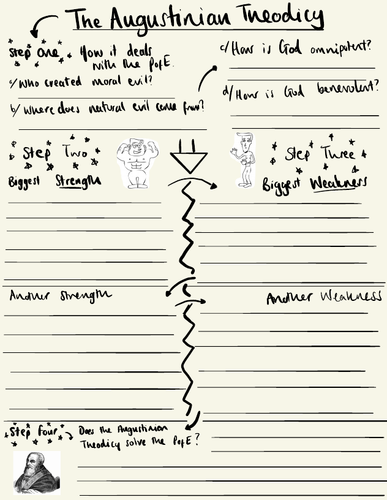 The Augustinian Theodicy
Step One
How it deals
with the PofE.
a/ Who created moral evil?
b/ Where does natural evil come from?
c/ How is God omnipotent?
d/ How is God benevolent?
Step Two
Biggest Strength
Step Three
Biggest Weakness
Another Strength
Another Weakness
Step Four
Does the Augustinian
Theodicy solve the PofE?